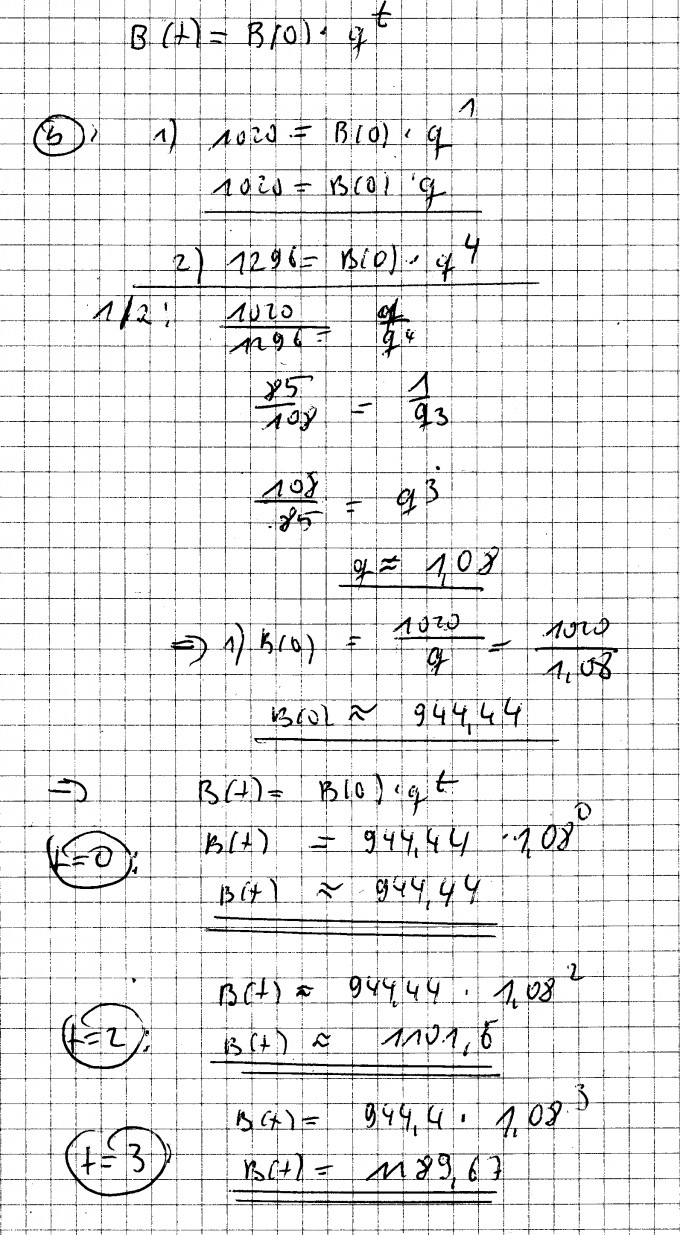 B(t) = B(0) · q^t
b: 1) 1020 = B(0) · q^1
1020 = B(0) · q
2) 1296 = B(0) · q^4
1/2: 1020/1296 = q/q^4
85/108 = 1/q3
108/85 = q^3
q ≈ 1,08
=> 1) B(0) = 1020/q = 1020/1,08
B(0) ≈ 944,44
=> B(t) = B(0) · q^t
t=0: B(t) = 944,44 · 1,08^0
B(t) ≈ 944,44
B(t) ≈ 944,44 · 1,08^2
t=2: B(t) ≈ 1101,6
B(t) = 944,4 · 1,08^3
t=3: B(t) = 1189,67